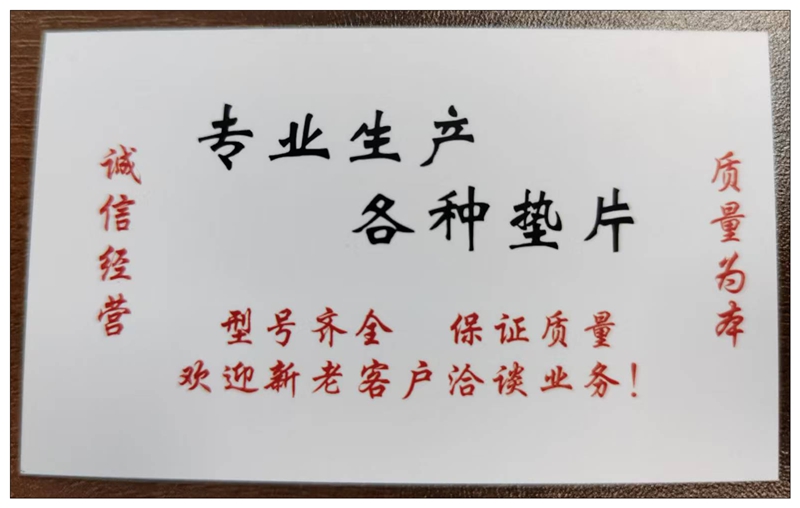 专业生产
各种垫片
诚信经营
质量为本
型号齐全 保证质量
欢迎新老客户洽谈业务!